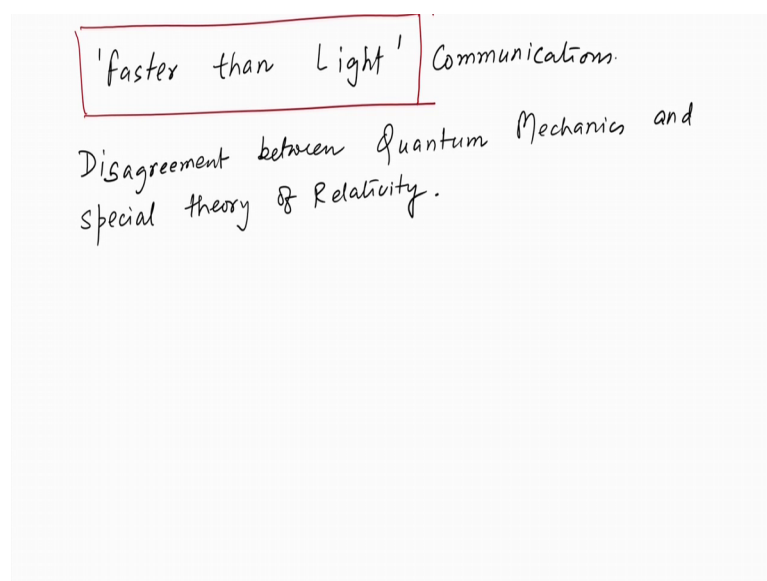 'faster than Light' Communications.
Disagreement between Quantum Mechanics and
special theory of Relativity.